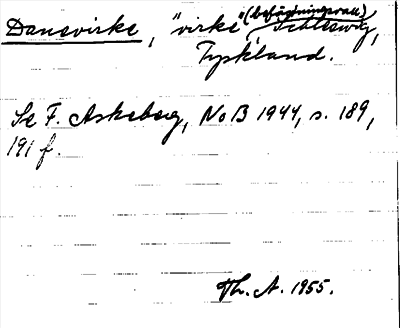 Danevirke, "virke" (befästningsvall), Schleswig,
Tyskland.
Se F. Askeberg, NoB 1944, s. 189,
191 f.
Th. A. 1955.